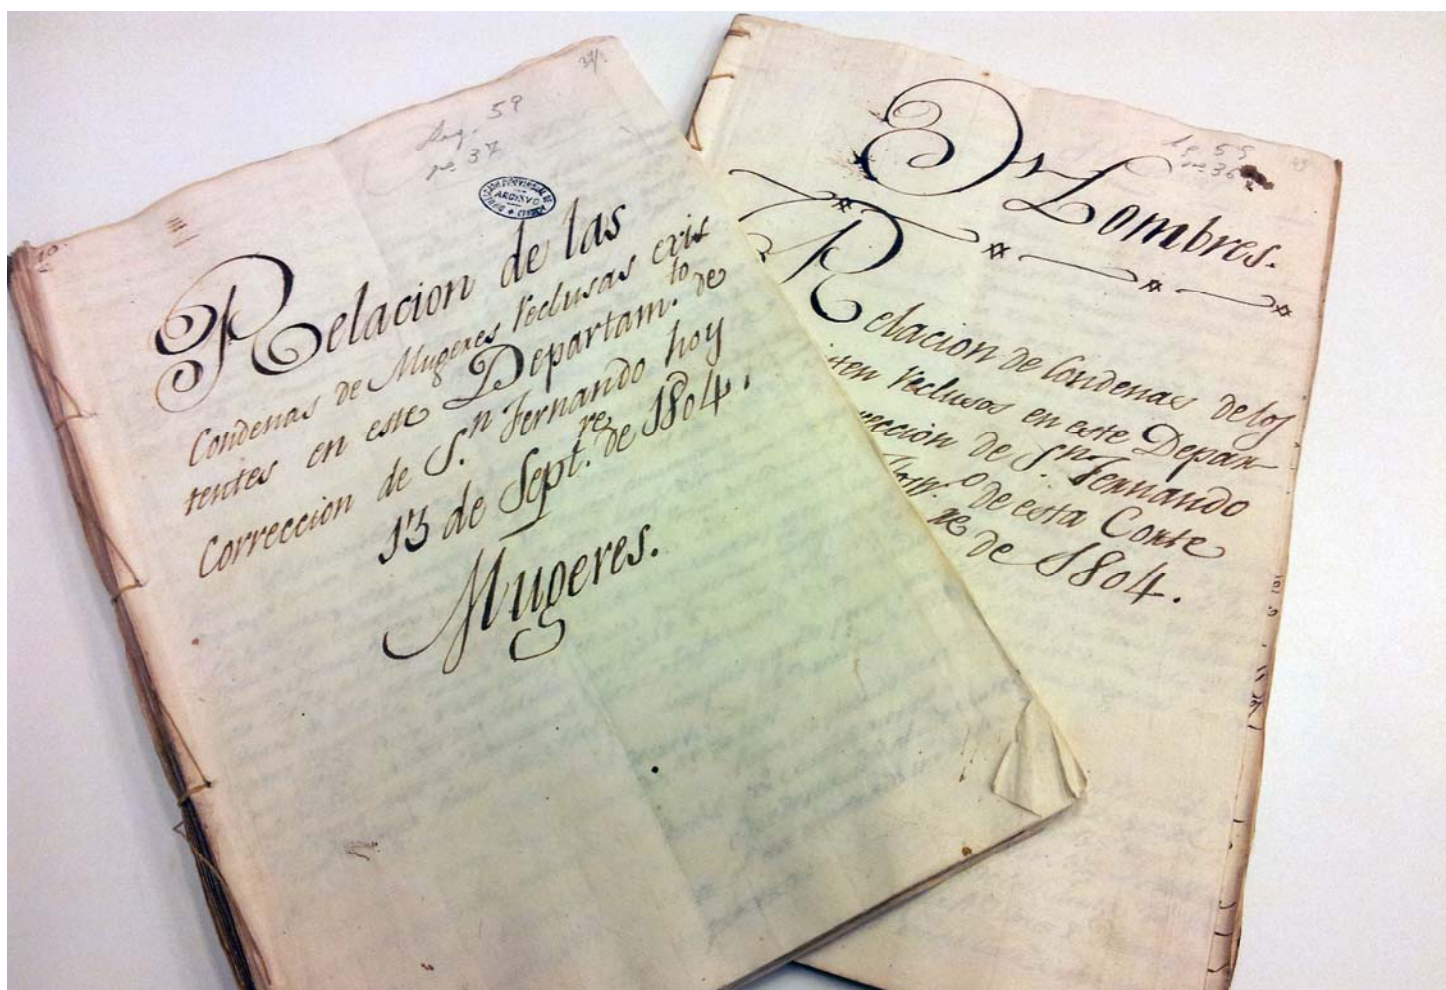 Leg. 59
nº 37
DIPUTACION PROVINCIAL DE
ARCHIVO
Relacion de las
Condenas de Mugeres Reclusas exis
tentes en este Departam.to de
Correccion de S.n Fernando hoy
13 de Sept.re de 1804.
Mugeres.
Leg. 59
nº 36
Hombres.
Relacion de Condenas de los
isten reclusos en este Depar-
reccion de S.n Fernando
de esta Corte
re de 1804.